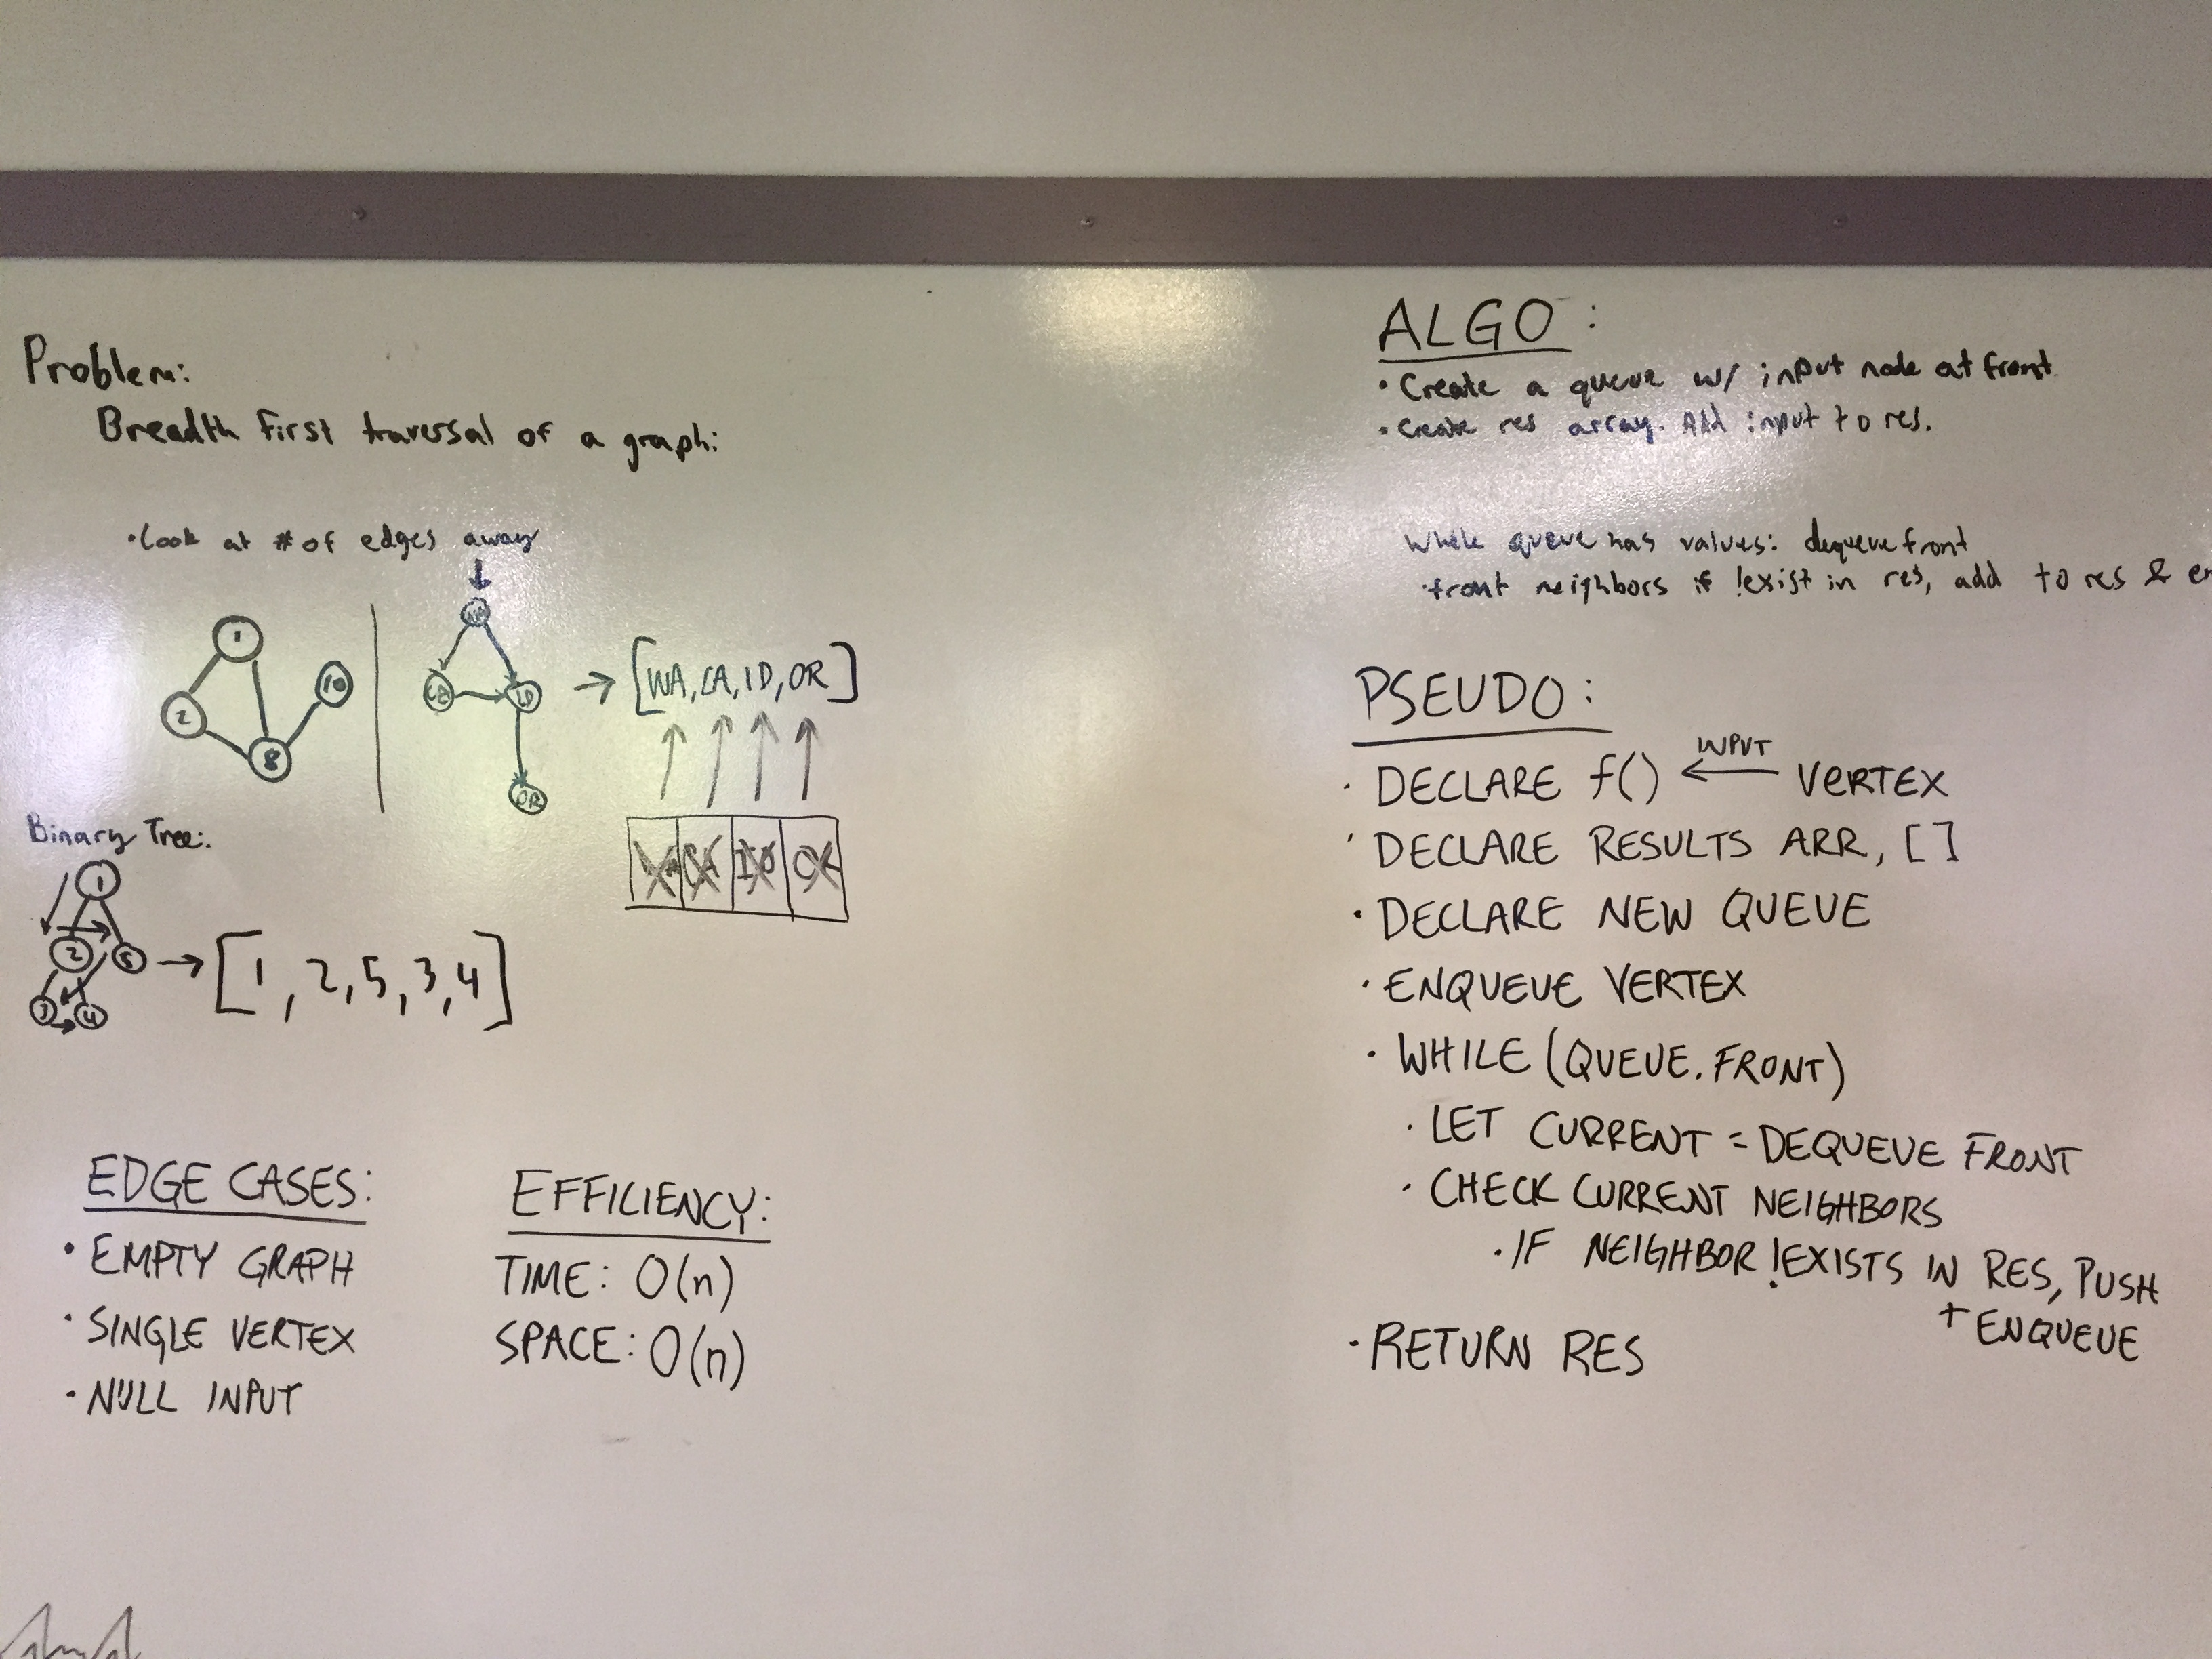 Problem:
Breadth first traversal of a graph:
• Look at # of edges away
1
2
8
10
WA
CA
ID
OR
→ [WA, CA, ID, OR]
ID
Binary Tree:
1
2
5
3
4
→ [1, 2, 5, 3, 4]
EDGE CASES:
• EMPTY GRAPH
• SINGLE VERTEX
• NULL INPUT
EFFILIENCY:
TIME: O(n)
SPACE: O(n)
ALGO:
• Create a queue w/ input node at front
• Create res array. Add input to res.
While queue has values: dequeue front
• front neighbors if !exist in res, add to res &
PSEUDO:
• DECLARE f() ← INPUT VERTEX
• DECLARE RESULTS ARR, []
• DECLARE NEW QUEUE
• ENQUEUE VERTEX
• WHILE (QUEUE.FRONT)
• LET CURRENT = DEQUEUE FRONT
• CHECK CURRENT NEIGHBORS
• IF NEIGHBOR !EXISTS IN RES, PUSH
+ ENQUEUE
• RETURN RES